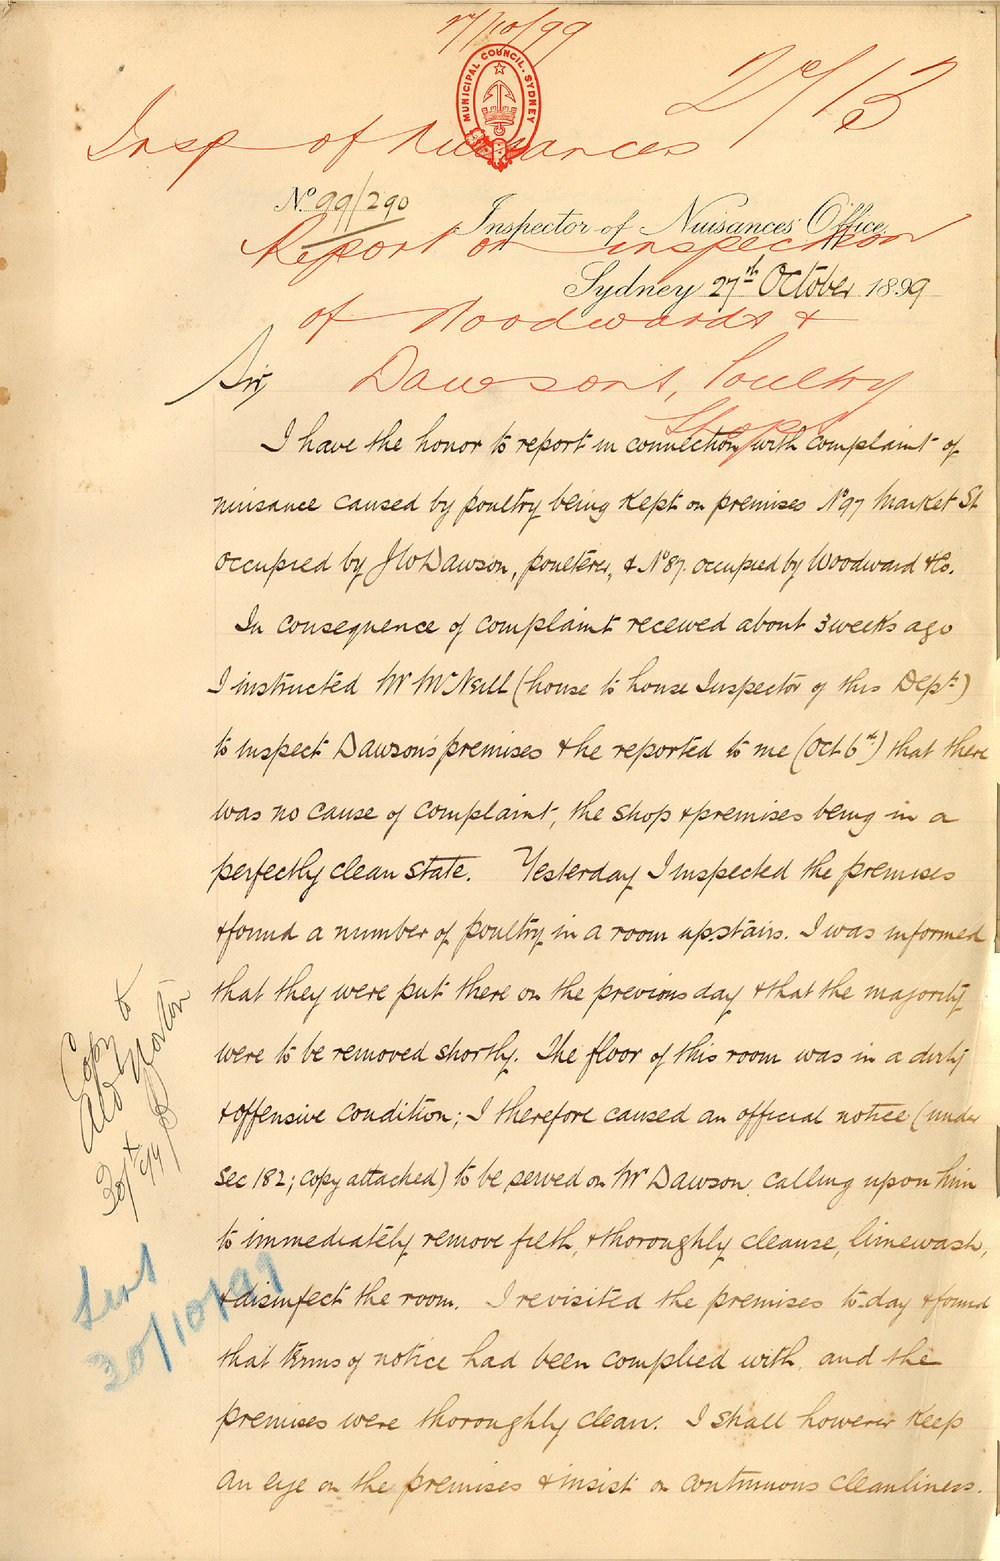 27/10/99
MUNICIPAL COUNCIL. SYDNEY
Insp of Nuisances
No 99/290
Inspector of Nuisances Office,
Report on inspection
Sydney 27th October 1899
of Woodwards &
Sir,
Dawson's, Poultry
Shops
I have the honor to report in connection with complaint of
nuisance caused by poultry being kept on premises No 97 Market St
occupied by J W Dawson, poulterer, & No 87 occupied by Woodward & Co.
In consequence of complaint received about 3 weeks ago
I instructed Mr McNeill (house to house Inspector of this Dept)
to inspect Dawson's premises & he reported to me (Oct 6th) that there
was no cause of complaint, the shop & premises being in a
perfectly clean state. Yesterday I inspected the premises
& found a number of poultry in a room upstairs. I was informed
that they were put there on the previous day & that the majority
were to be removed shortly. The floor of this room was in a dirty
& offensive condition; I therefore caused an official notice (under
Sec 182; copy attached) to be served on Mr Dawson calling upon him
to immediately remove filth, & thoroughly cleanse, limewash,
& disinfect the room. I revisited the premises to-day & found
that terms of notice had been complied with, and the
premises were thoroughly clean. I shall however keep
an eye on the premises & insist on continuous cleanliness.
Copy to
Ald Norton
Sent
30/10/99